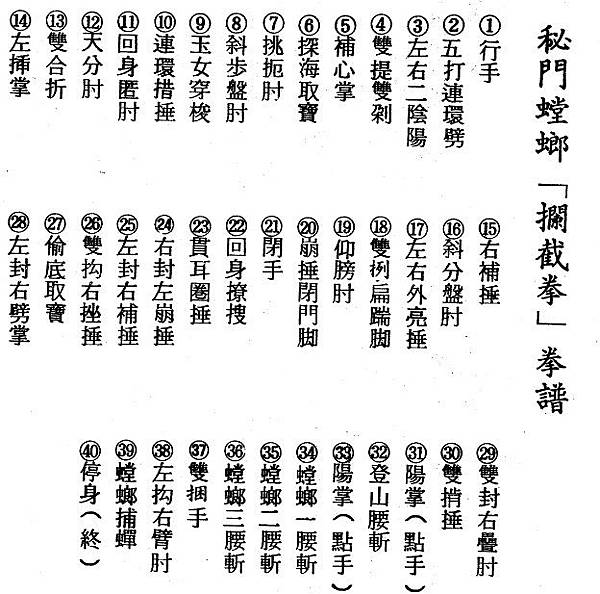 秘門螳螂「攔截拳」拳譜
①行手
②五打連環劈
③左右二陰陽
④雙提雙剁
⑤補心掌
⑥探海取寶
⑦挑扼肘
⑧斜步盤肘
⑨玉女穿梭
⑩連環措捶
⑪回身匿肘
⑫天分肘
⑬雙合折
⑭左揷掌
⑮右補捶
⑯斜分盤肘
⑰左右外亮捶
⑱雙挒扁踹脚
⑲仰膀肘
⑳崩捶閉門脚
㉑閉手
㉒回身撩搜
㉓貫耳圈捶
㉔右封左崩捶
㉕左封右補捶
㉖雙抅右挫捶
㉗偷底取寶
㉘左封右劈掌
㉙雙封右疊肘
㉚雙掯捶
㉛陽掌(點手)
㉜登山腰斬
㉝陽掌(點手)
㉞螳螂一腰斬
㉟螳螂二腰斬
㊱螳螂三腰斬
㊲雙捆手
㊳左抅右臂肘
㊴螳螂捕蟬
㊵停身(終)